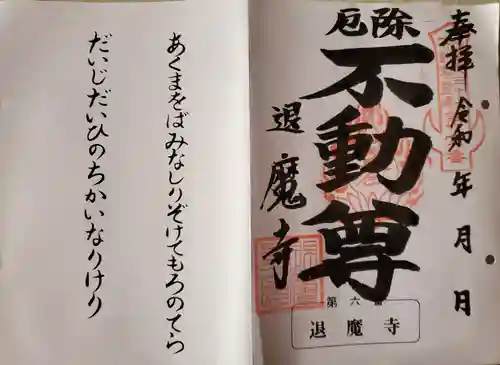 奉拝 令和 年 月 日
厄除
不動尊
退魔寺
第六番
退魔寺
あくまをばみなしりぞけてもろのてら
だいじだいひのちかいなりけり